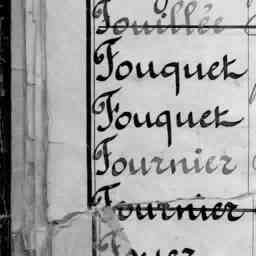 Fouillée
Fouquet
Fouquet
Fournier
Fournier